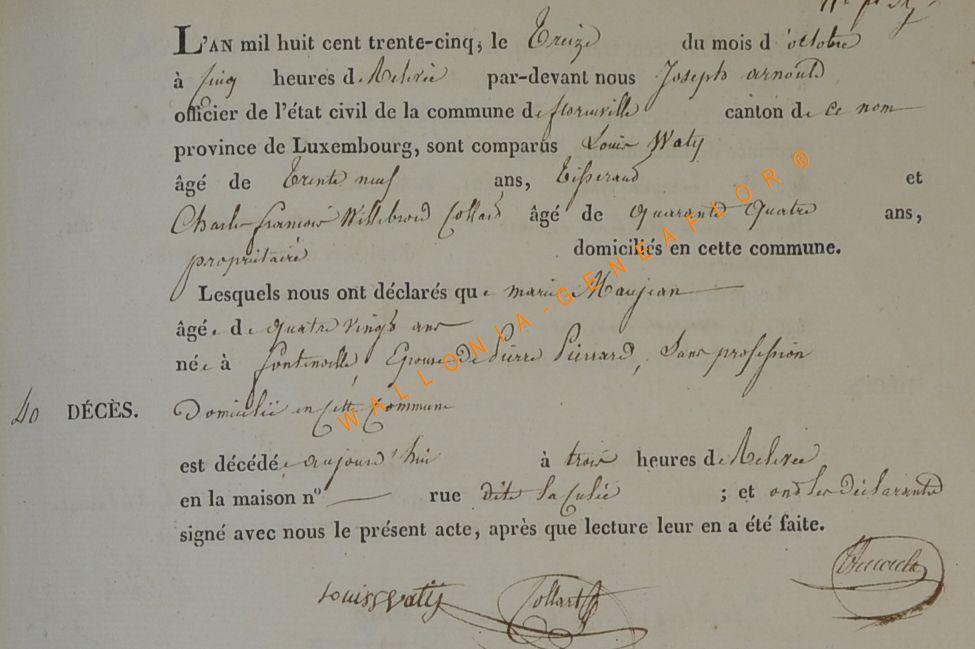 L'AN mil huit cent trente-cinq, le Treize du mois d'octobre
à cinq heures de Relevée par-devant nous Joseph arnould
officier de l'état civil de la commune de florenville canton de ce nom
province de Luxembourg, sont comparus Louis Waty
âgé de Trente neuf ans, Tisserand et
Charles françois Willebrord Collard âgé de quarante quatre ans,
propriétaire domiciliés en cette commune.
Lesquels nous ont déclarés que marie Maujean
âgée de quatre vingts ans
née à fontenoille, Epouse de Pierre Pierrard, Sans profession
40 DÉCÈS. Domiciliée en Cette Commune
est décédée aujourd'hui à trois heures de Relevée
en la maison nº rue dite la Culée ; et ont les déclarants
signé avec nous le présent acte, après que lecture leur en a été faite.
Louis Waty Collard
WALLONIA-GENEAFOR ®